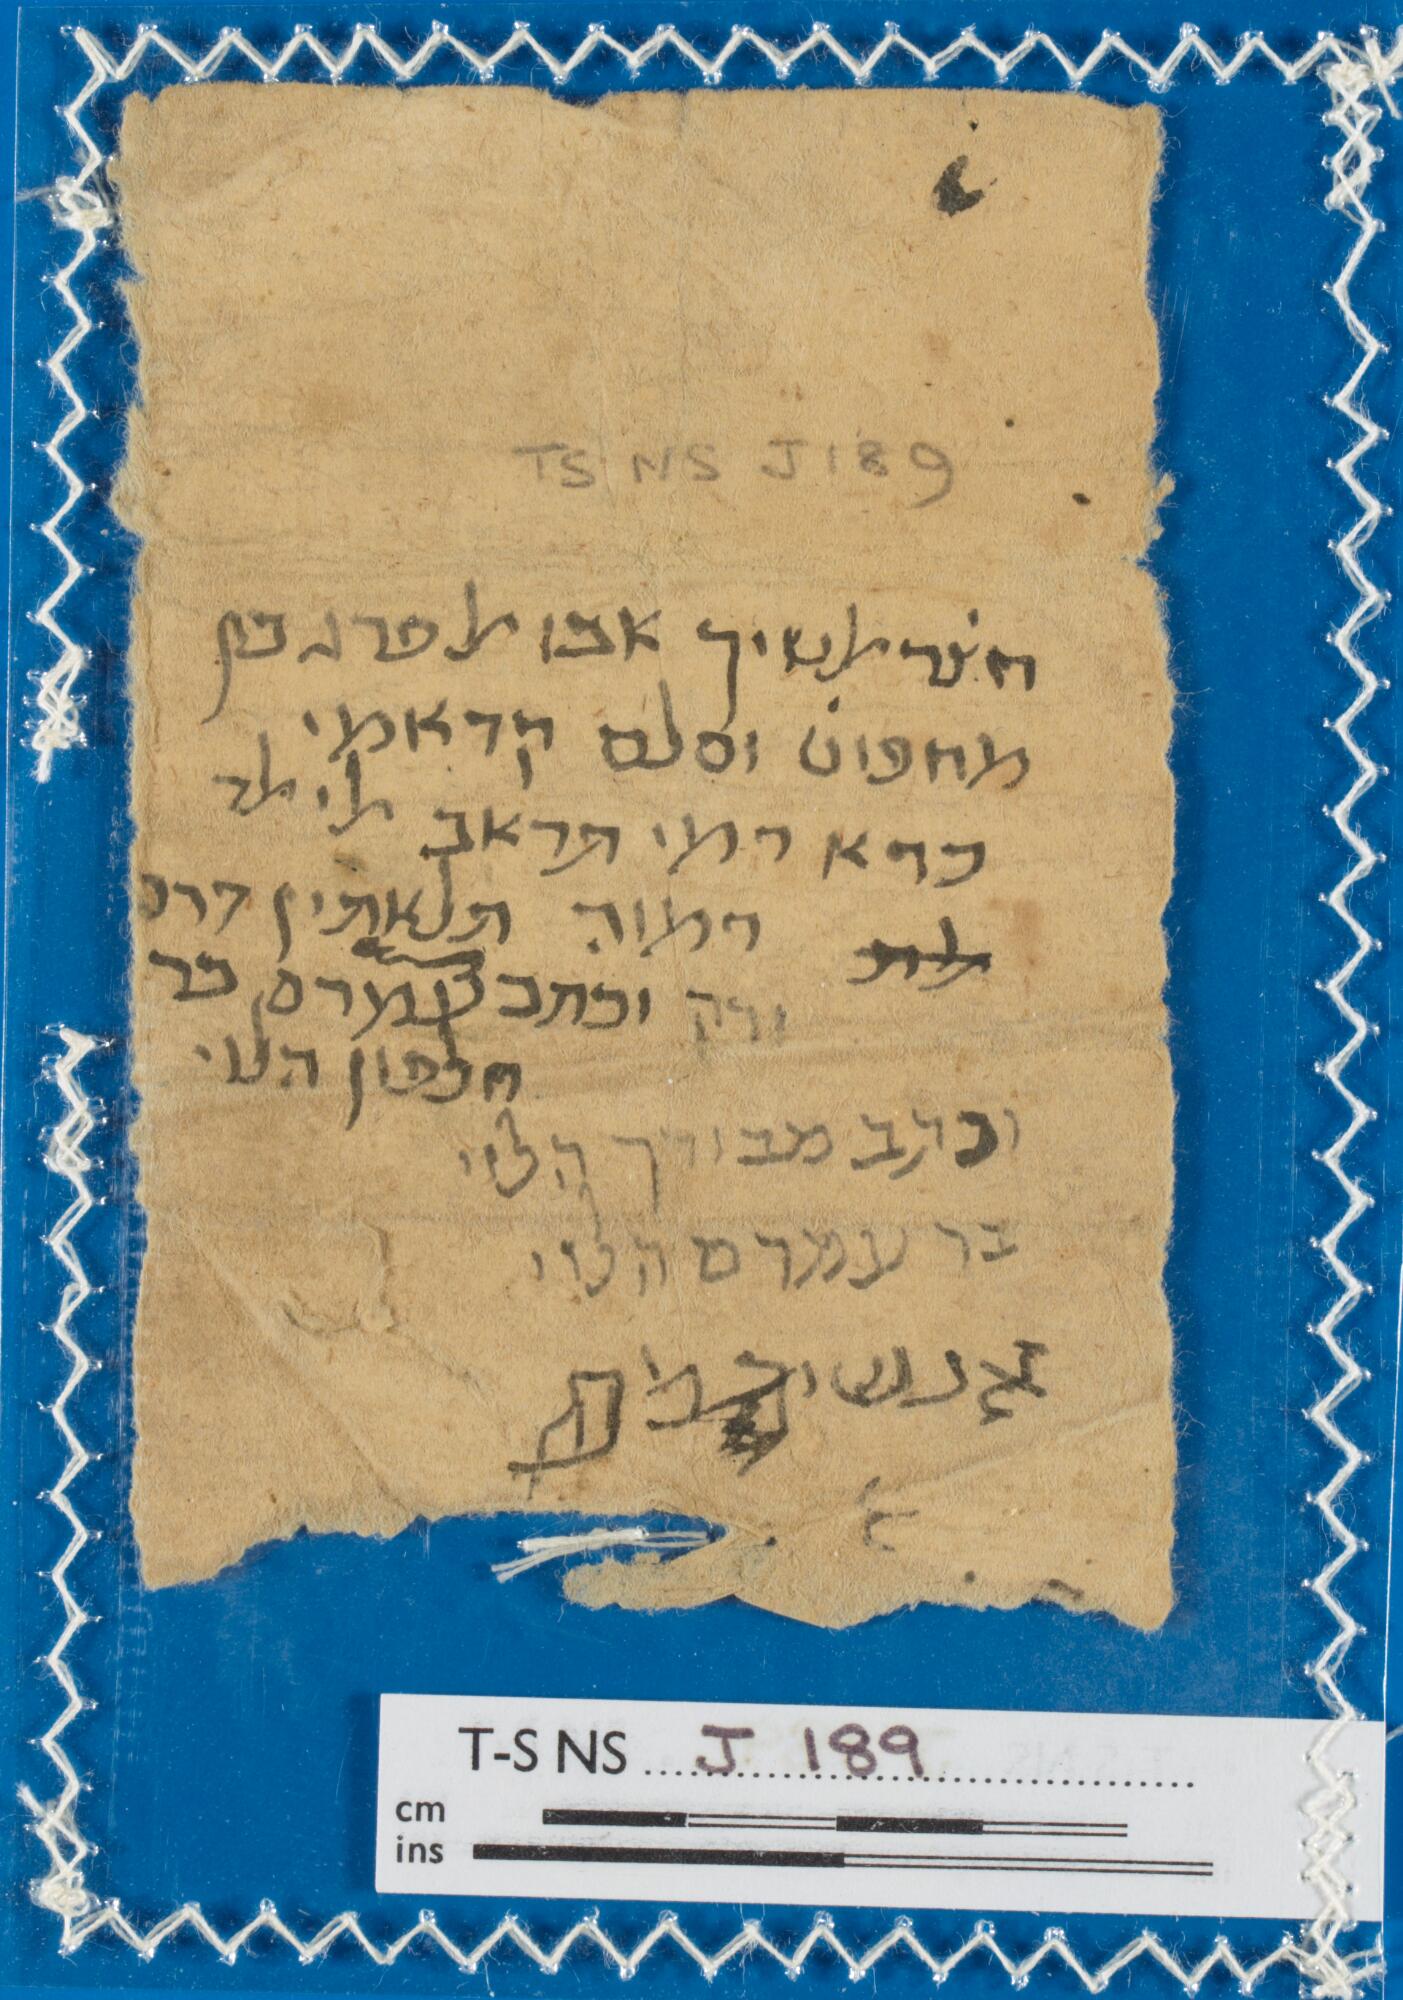 TS NS J189
חצׄר לשיך אבו לפרג בן
מחפוטׄ וסלם קדאמי
כרא רמי תראב
רמוה תלאתין דרה
ורק וכתב עמרם בר
חלפון הלוי
וכתב מבורך הלוי
בר עמרם הלוי
T-S NS J 189
cm
ins